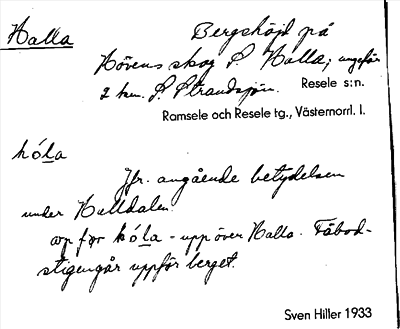 Halla
Bergshöjd på
Hövens skog S. Halla; ungefär
2 km. S. Strandsjön. Resele s:n.
Ramsele och Resele tg., Västernorrl. l.
hóla
Jfr. angående betydelsen
under Halldalen.
op før hóla - uppöver Halla. Fäbod-
stigen går uppför berget.
Sven Hiller 1933